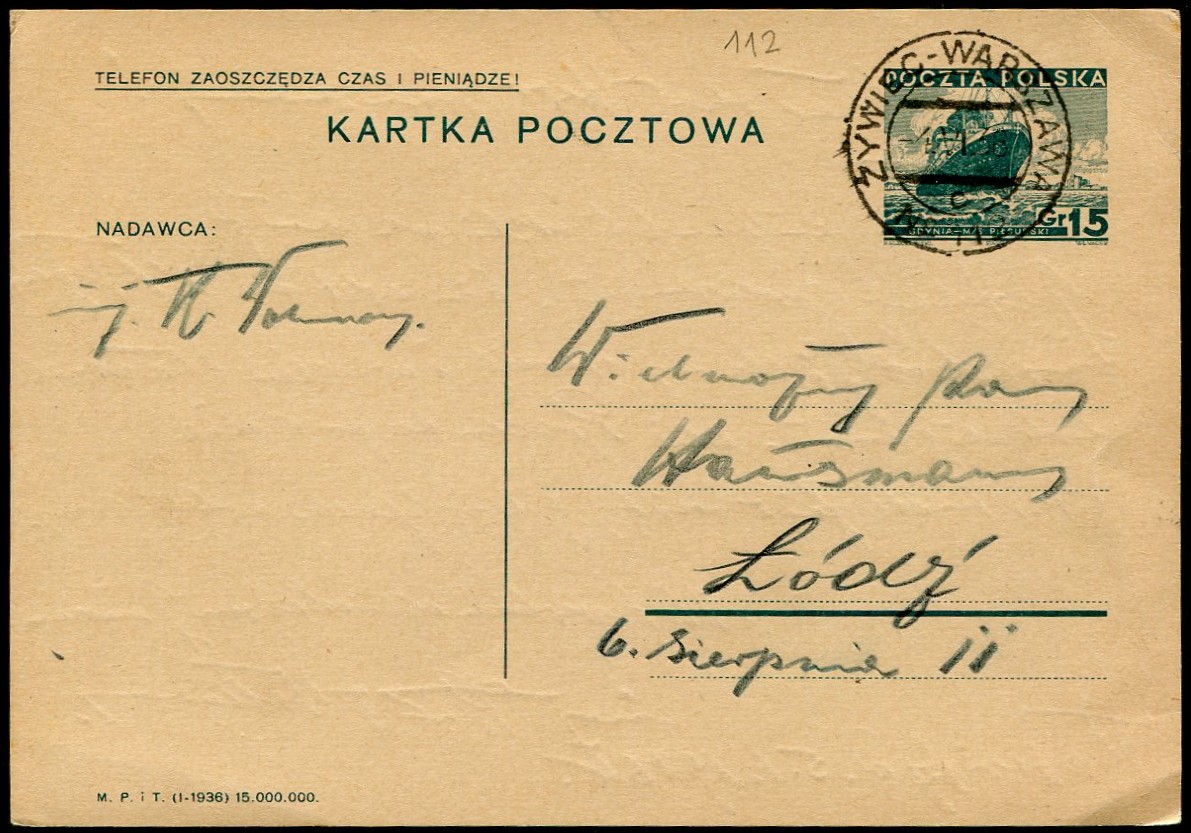 112
TELEFON ZAOSZCZĘDZA CZAS I PIENIĄDZE!
KARTKA POCZTOWA
ŻYWIEC-WARSZAWA
POCZTA POLSKA
Gr 15
GDYNIA-M/S PIŁSUDSKI
NADAWCA:
inż. K.
Wielmożny Pan
Łódź
6. Sierpnia 11
M. P. i T. (I-1936) 15.000.000.